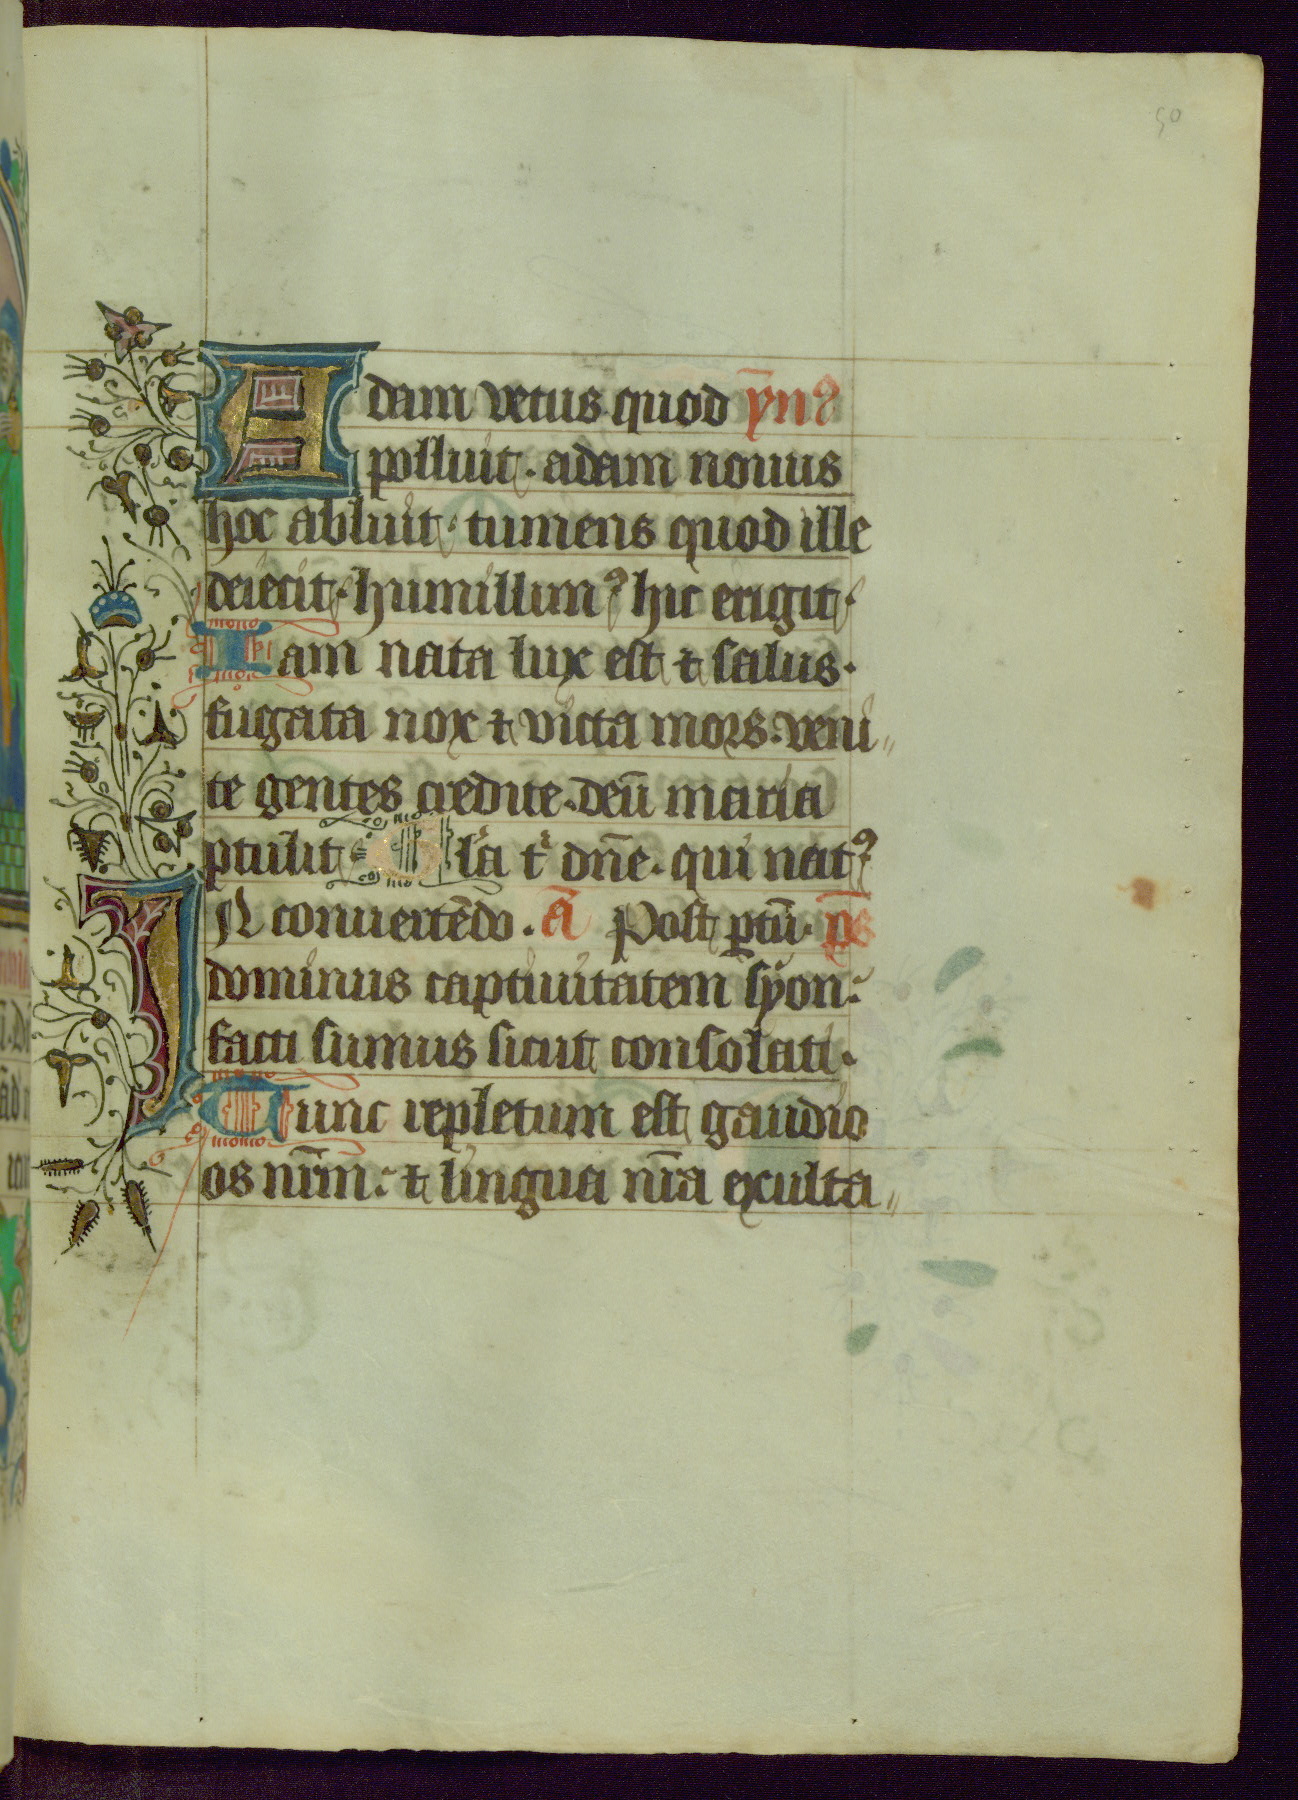 50
Adam vetus quod yn̄ꝰ
polluit. adam nouus
hoc abluit. tumens quod ille
deiecit. humillimꝰ hic erigit.
Iam nata lux est ⁊ salus.
fugata nox ⁊ victa mors. veni〃
te gentes credite. deū maria
ꝑtulit Gl̄a t̄ dn̄e. qui natꝰ
IN conuertēdo. ā Post ꝑtū. p̄s
dominus captiuitatem syon:
facti sumus sicut consolati.
Tunc repletum est gaudio
os nr̄m: ⁊ lingua nr̄a exulta〃